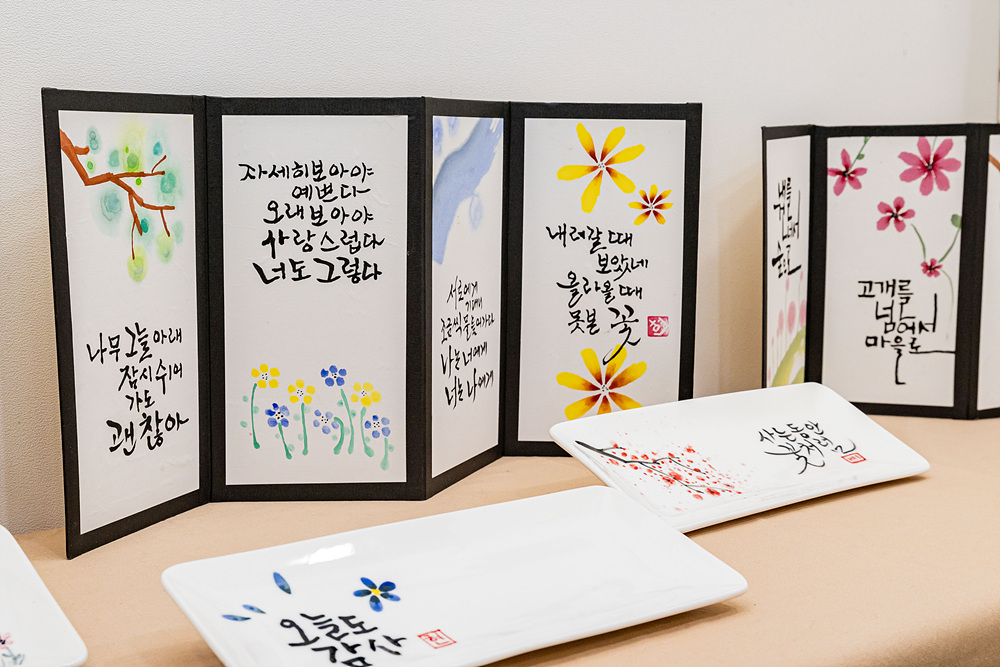 나무그늘아래
잠시쉬어
가도
괜찮아
자세히보아야
예쁜다
오래보아야
사랑스럽다
너도그렇다
서로에게
기대어
조금씩물들어가라
나는너에게
너는나에게
내려갈때
보았네
올라올때
못본꽃
고개를
넘어에서
마을로
사는동안
꽃처럼
오늘도
감사